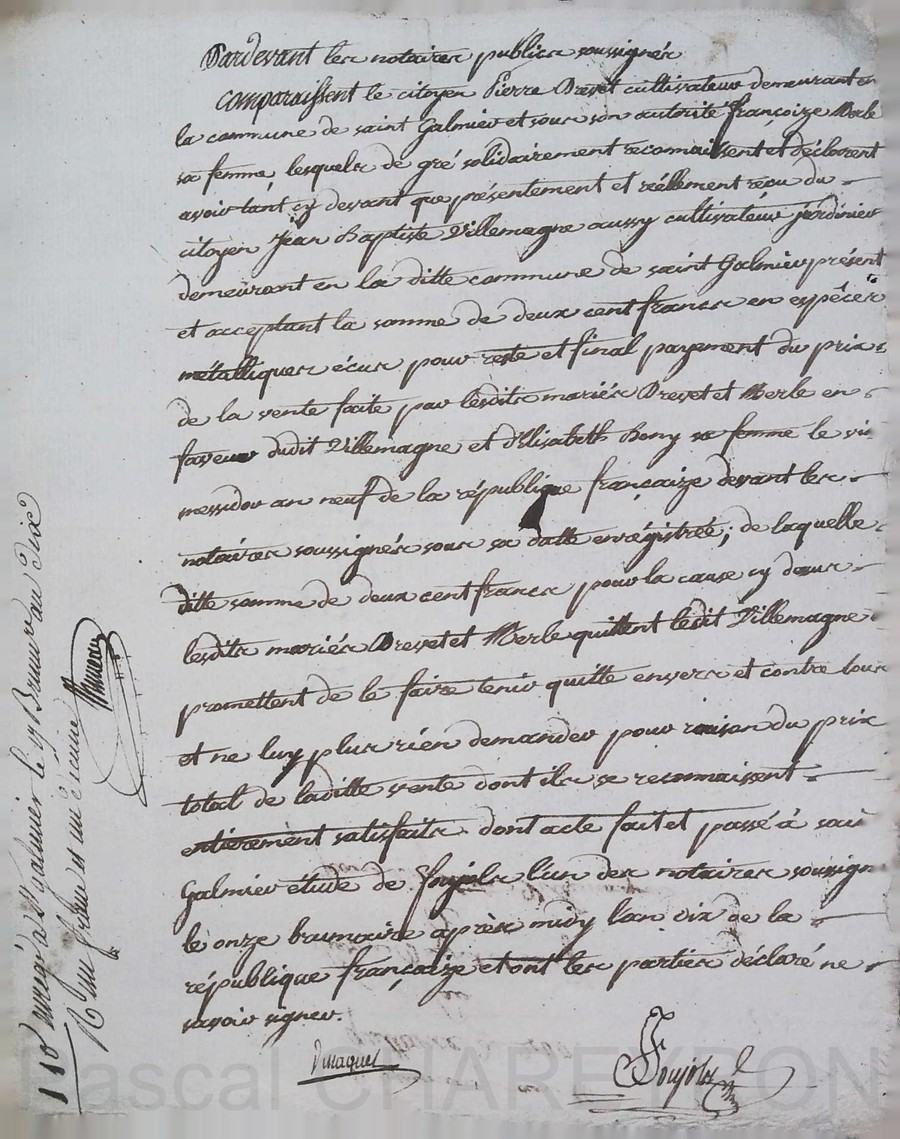 Pardevant les notaires publics soussignés
comparaissent le citoyen Pierre Brevet cultivateur demeurant en
la commune de saint Galmier et sous son autorité françoize Merle
sa femme, lesquels de gré solidairement reconnaissent et déclarent
avoir tant cy devant que présentement et réellement reçu du
citoyen Jean Baptiste Villemagne aussy cultivateur jardinier
demeurant en la ditte commune de saint Galmier présent
et acceptant la somme de deux cent francs en espêces
métalliques écus pour reste et final payement du prix
de la vente faite par lesdits mariés Brevet et Merle en
faveur dudit Villemagne et d'Elisabeth Bony sa femme le
messidor an neuf de la république françaize devant les
notaires soussignés sous sa datte enrégistrée; de laquelle
ditte somme de deux cent francs pour la cause cy dessus
lesdits mariés Brevet et Merle quittent ledit Villemagne
promettent de le faire tenir quitte envers et contre tous
et ne luy plus rien demander pour raison du prix
total de laditte vente dont ils se reconnaissent
entièrement satisfaits. dont acte fait et passé à
Galmier étude de Soujols l'un des notaires
le onze brumaire après midy l'an dix de la
république françaize et ont les parties déclaré ne
savoir signer.
Soujols
Pascal CHAREYRON
enregé à St Galmier le Brumr an dix
R un franc et un décime